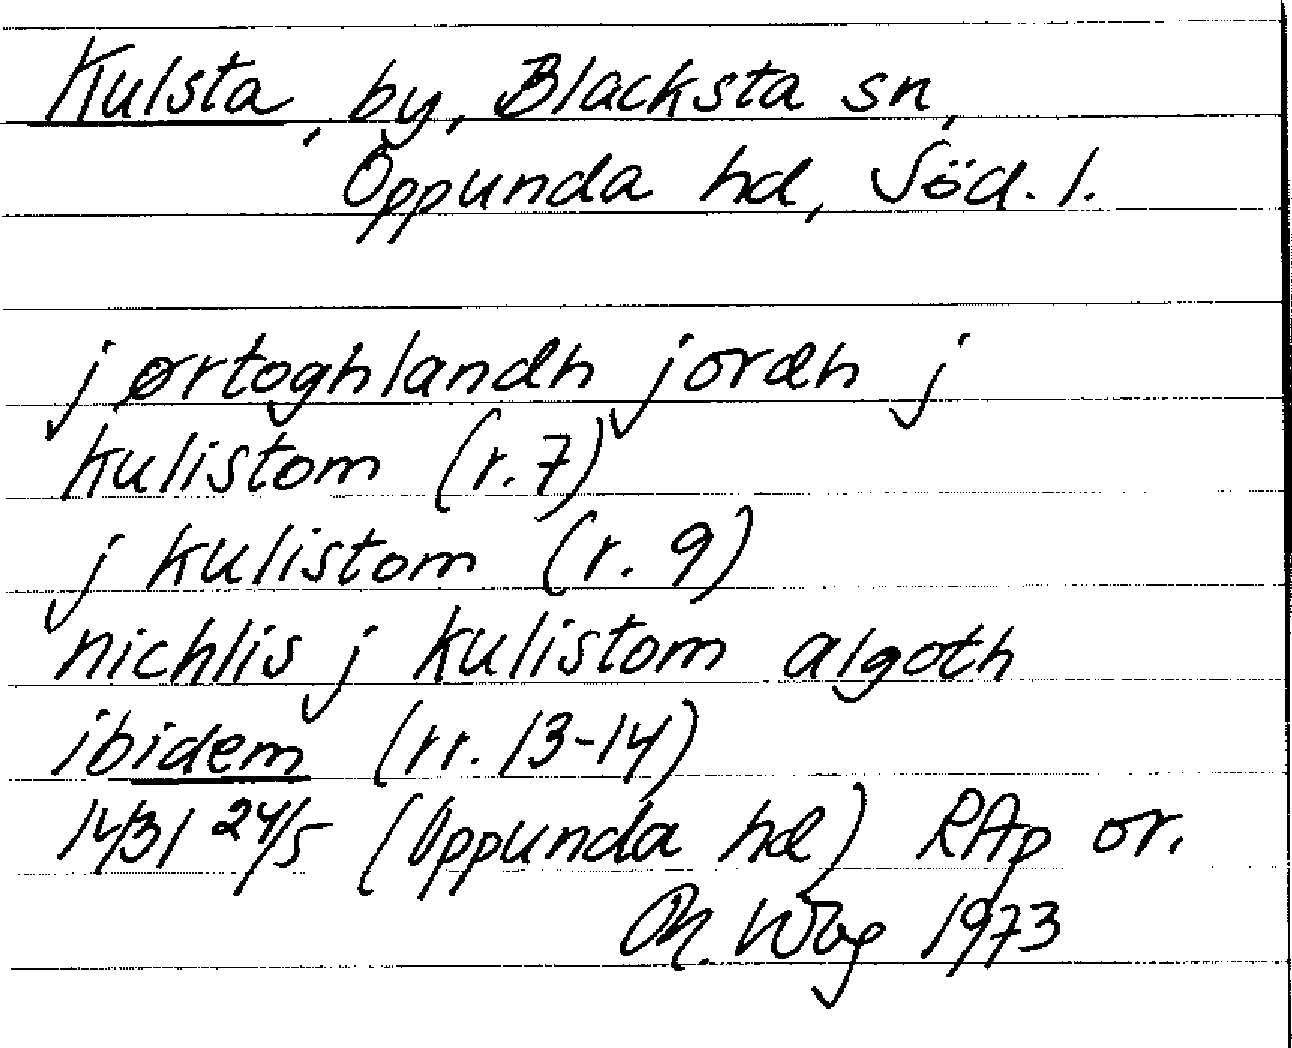 Kulsta, by, Blacksta sn,
Oppunda hd, Söd. l.
j ørtoghlandh jordh j
kulistom (r. 7)
j kulistom (r. 9)
nichlis j kulistom algoth
ibidem (rr. 13-14)
1431 24/5 (Oppunda hd) RAp or.
1973